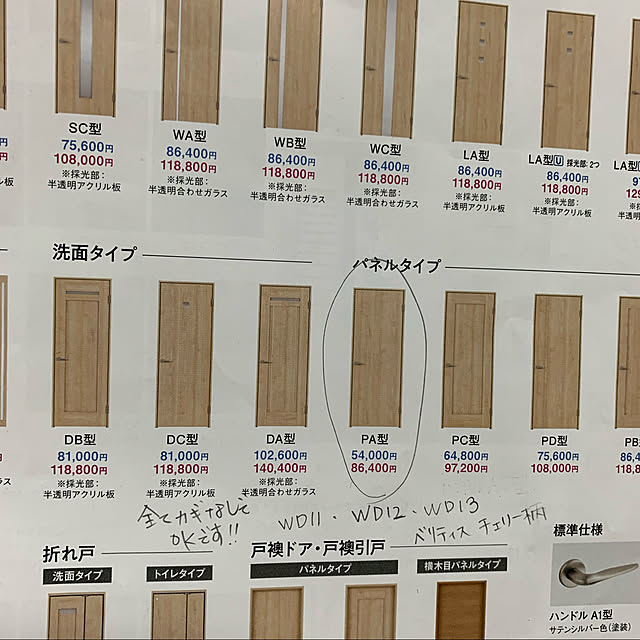 SC型
75,600円
108,000円
※採光部：
半透明アクリル板
WA型
86,400円
118,800円
※採光部：
半透明合わせガラス
WB型
86,400円
118,800円
※採光部：
半透明合わせガラス
WC型
86,400円
118,800円
※採光部：
半透明合わせガラス
LA型
86,400円
118,800円
※採光部：
半透明アクリル板
LA型U 採光部：2つ
86,400円
118,800円
※採光部：
半透明アクリル板
洗面タイプ
パネルタイプ
DB型
81,000円
118,800円
※採光部：
半透明アクリル板
DC型
81,000円
118,800円
※採光部：
半透明アクリル板
DA型
102,600円
140,400円
※採光部：
半透明合わせガラス
PA型
54,000円
86,400円
PC型
64,800円
97,200円
PD型
75,600円
108,000円
全てカギなしで
OKです!!
WD11・WD12・WD13
ベリティス チェリー柄
折れ戸
洗面タイプ
トイレタイプ
戸襖ドア・戸襖引戸
パネルタイプ
横木目パネルタイプ
標準仕様
ハンドル A1型
サテンシルバー色（塗装）